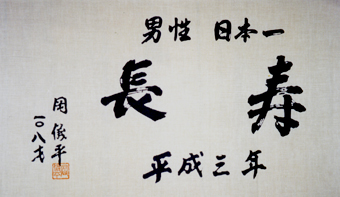 男性 日本一
長寿
平成三年
岡俊平
一〇八才